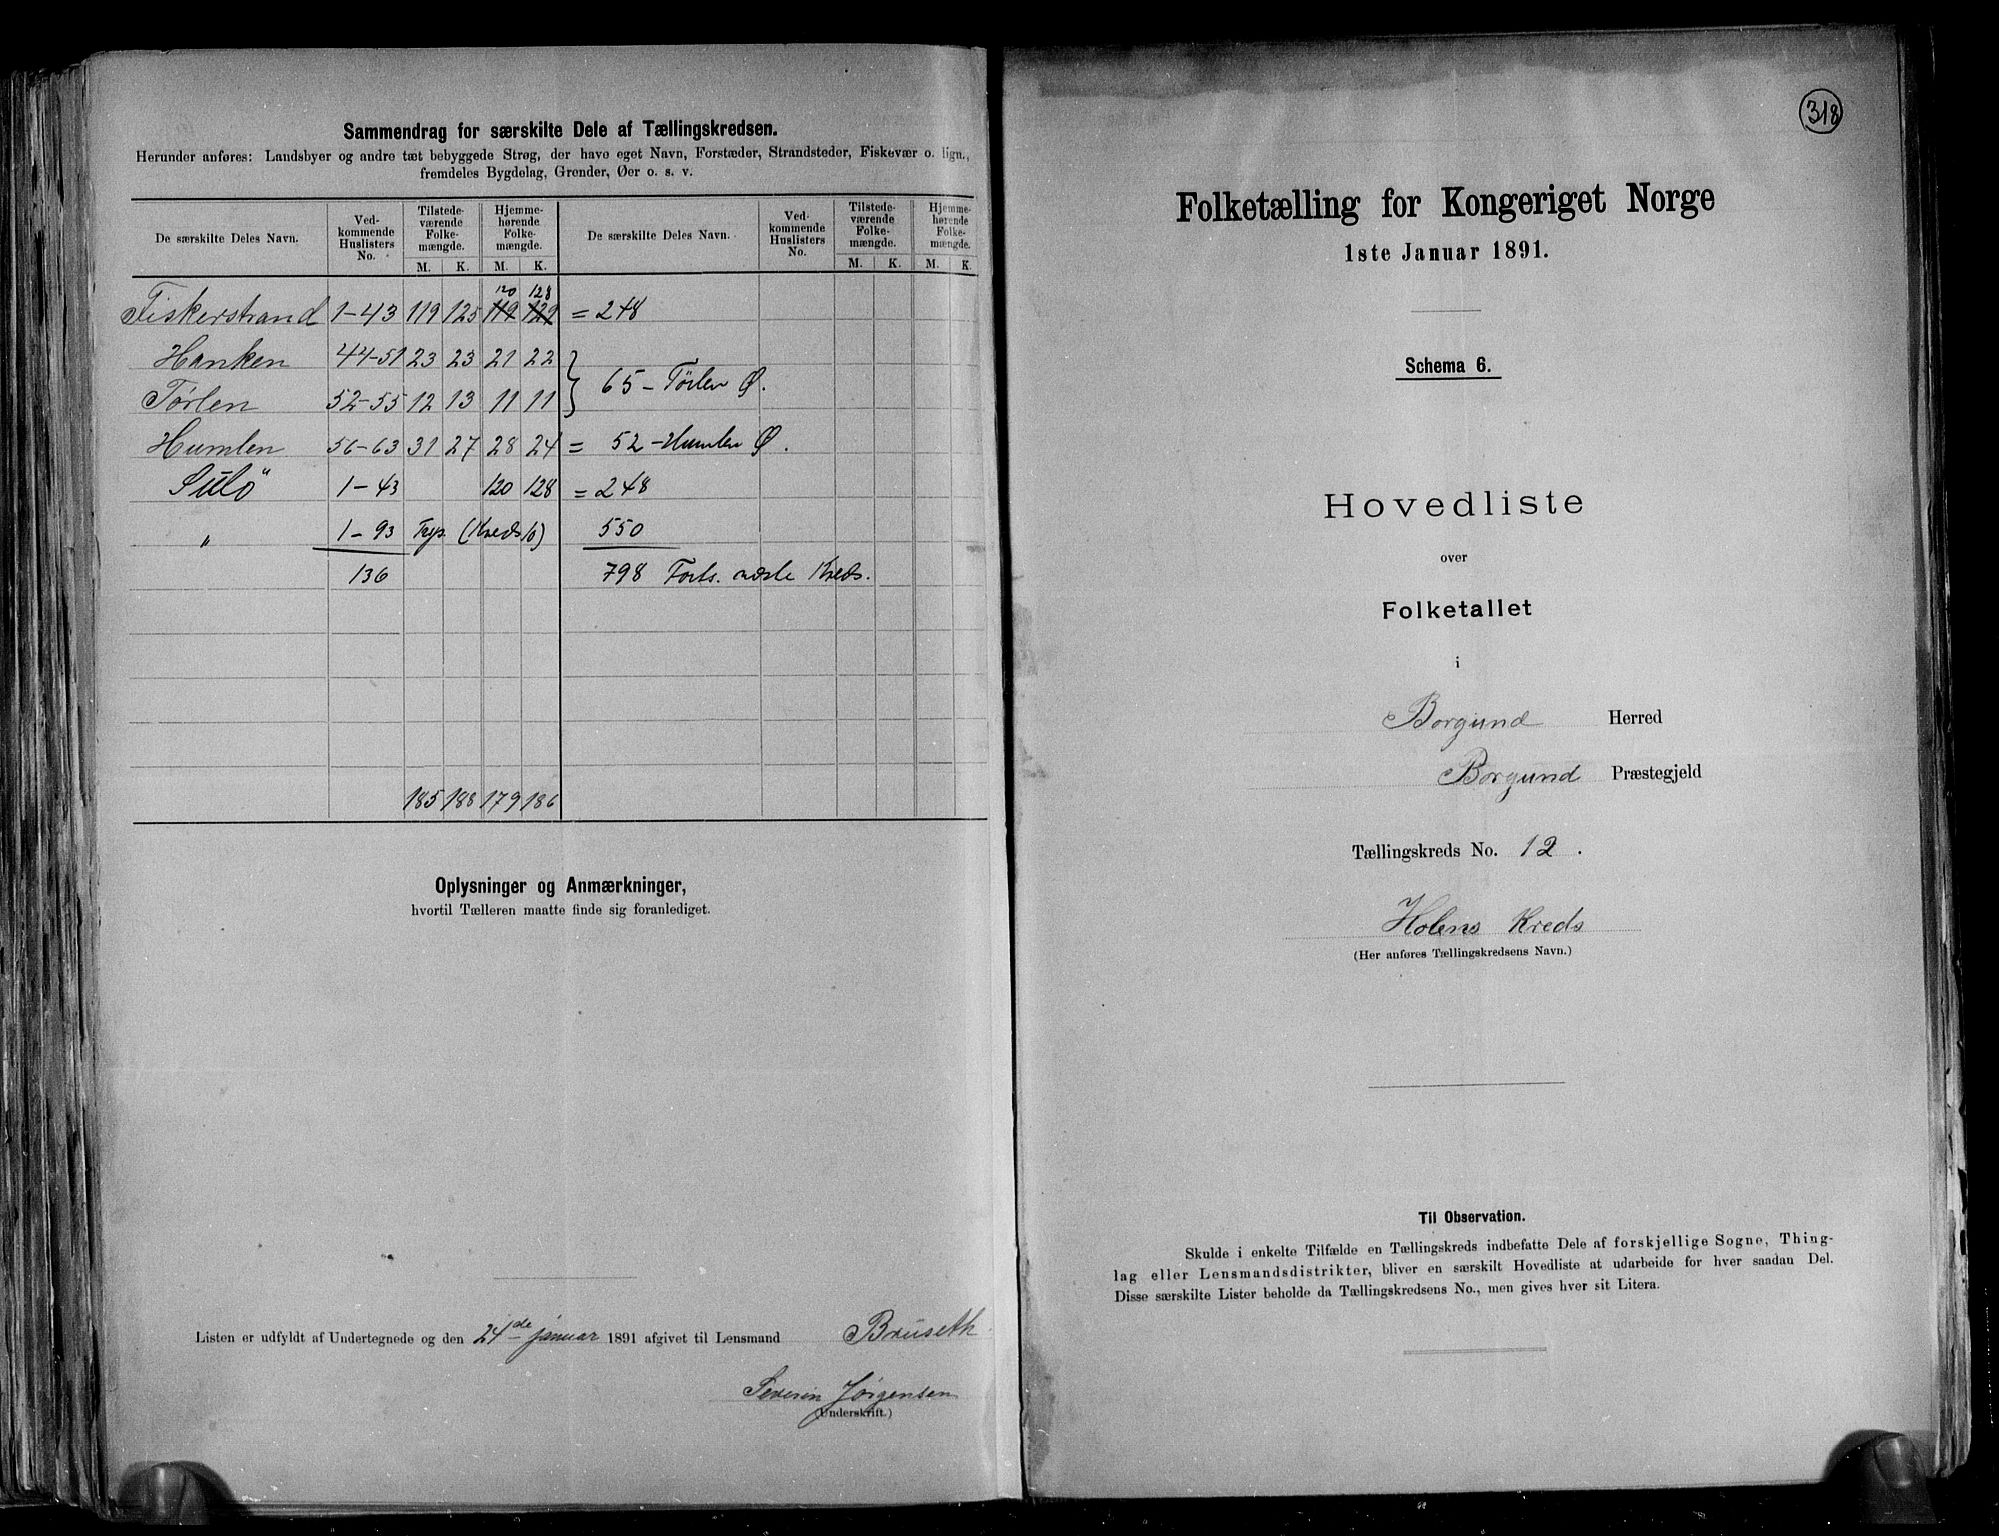 Sammendrag for særskilte Dele af Tællingskredsen.
Herunder anføres: Landsbyer og andre tæt bebyggede Strøg, der have eget Navn, Forstæder, Strandsteder, Fiskevær o. lign.,
fremdeles Bygdelag, Grender, Øer o. s. v.
De særskilte Deles Navn. Ved-kommende Huslisters No. Tilstede-værende Folke-mængde. Hjemme-hørende Folke-mængde. De særskilte Deles Navn. Ved-kommende Huslisters No. Tilstede-værende Folke-mængde. Hjemme-hørende Folke-mængde.
M. K. M. K. M. K. M. K.
120 128
Fiskerstrand 1-43 119 125 119 129 = 248
Hanken 44-51 23 23 21 22
65 - Tørlen Ø.
Tørlen 52-55 12 13 11 11
Humlen 56-63 31 27 28 24 = 52 - Humlen Ø.
Sulø 1-43 120 128 = 248
" 1-93 (Kreds 10) 550
136 798 Forts. næste Kreds.
185 188 179 186
Oplysninger og Anmærkninger,
hvortil Tælleren maatte finde sig foranlediget.
Listen er udfyldt af Undertegnede og den 24de januar 1891 afgivet til Lensmand Bruseth
Severin Jørgensen
(Underskrift.)
318
Folketælling for Kongeriget Norge
1ste Januar 1891.
Schema 6.
Hovedliste
over
Folketallet
i
Borgund Herred
Borgund Præstegjeld
Tællingskreds No. 12.
Holens Kreds
(Her anføres Tællingskredsens Navn.)
Til Observation.
Skulde i enkelte Tilfælde en Tællingskreds indbefatte Dele af forskjellige Sogne, Thing-
lag eller Lensmandsdistrikter, bliver en særskilt Hovedliste at udarbeide for hver saadan Del.
Disse særskilte Lister beholde da Tællingskredsens No., men gives hver sit Litera.